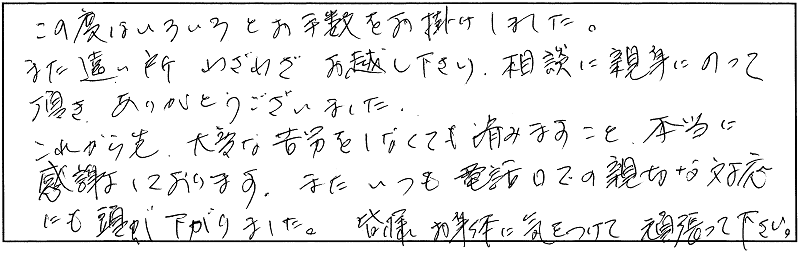 この度はいろいろとお手数をお掛けしました。
また遠い所 わざわざ お越し下さり、相談に親身にのって
頂き ありがとうございました。
これから先、大変な苦労をしなくても済みますこと、本当に
感謝しております。またいつも電話口での親切な対応
にも頭が下がりました。皆様 お身体に気をつけて 頑張って下さい。